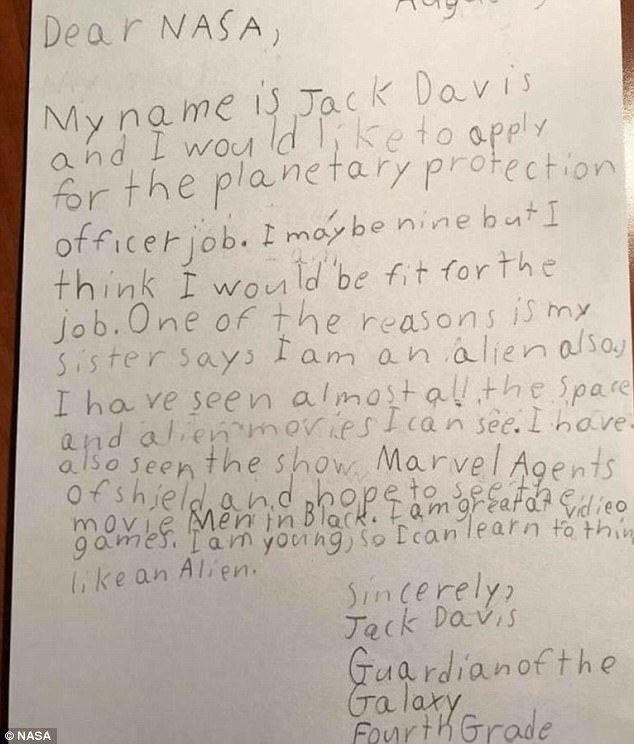 Dear NASA,
My name is Jack Davis
and I would like to apply
for the planetary protection
officer job. I maybe nine but I
think I would be fit for the
job. One of the reasons is my
sister says I am an alien also,
I have seen almost all the space
and alien movies I can see. I have
also seen the show Marvel Agents
of shield and hope to see the
movie Men in Black. I am great at vidieo
games. I am young, so I can learn to thin
like an Alien.
Sincerely,
Jack Davis
Guardian of the
Galaxy
Fourth Grade
© NASA